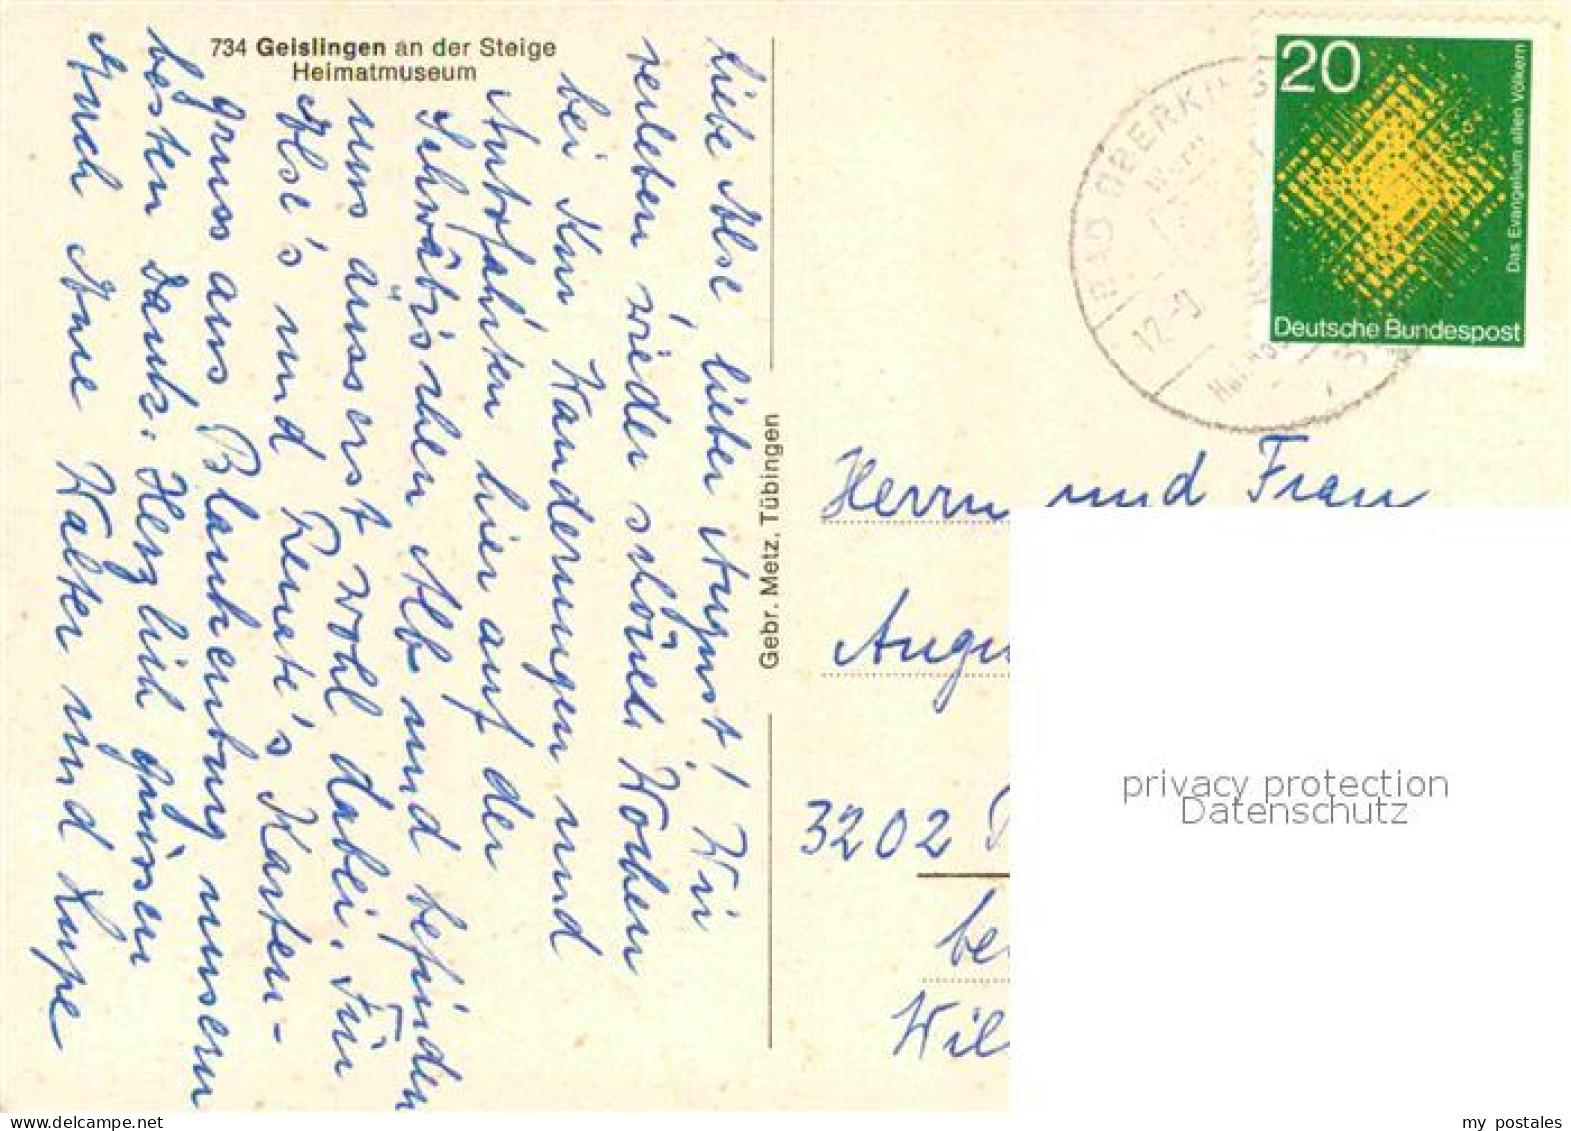 734 Geislingen an der Steige
Heimatmuseum
Liebe Ilse lieber August! Wir
verleben wieder schöne Wochen
bei Kur Wanderungen und
Autofahrten hier auf der
Schwäbischen Alb und befinden
uns äusserst wohl dabei. Für
Ilse's und Renate's Karten-
gruss aus Blankenburg unsern
besten Dank. Herzlich grüssen
Euch Eure Walter und Lupe
Gebr. Metz, Tübingen
20
Das Evangelium allen Völkern
Deutsche Bundespost
BAD
12.-9
Herrn und Frau
3202
privacy protection
Datenschutz
my postales